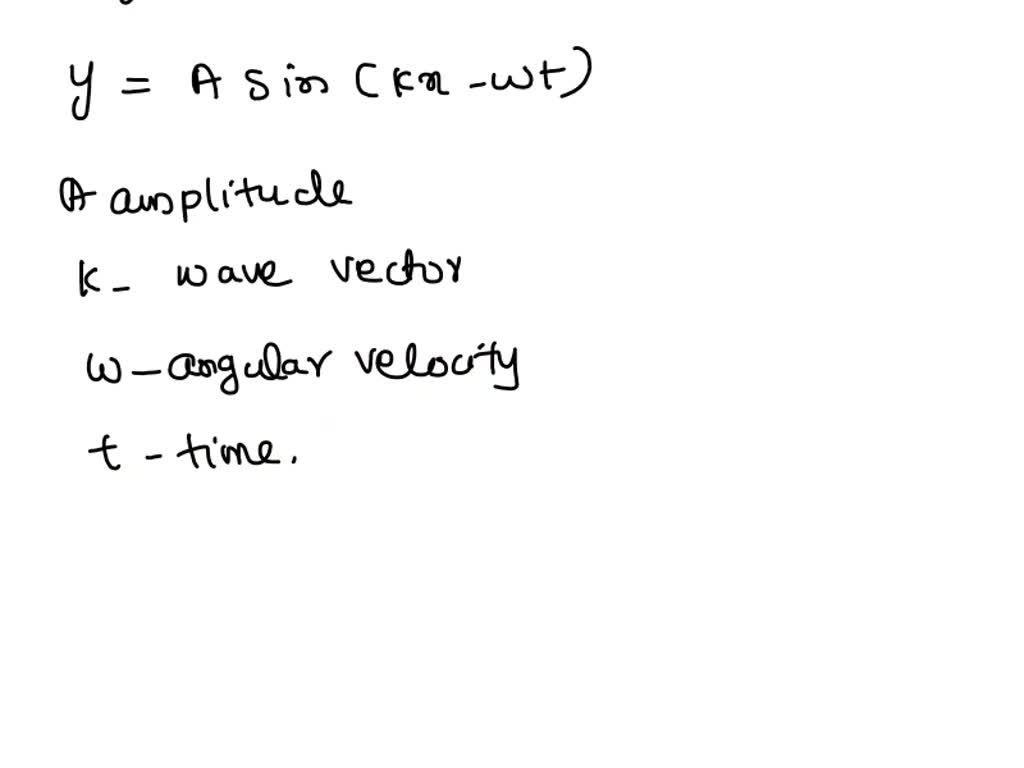 y = A sin (kx - wt)
A amplitude
k - wave vector
w - angular velocity
t - time.